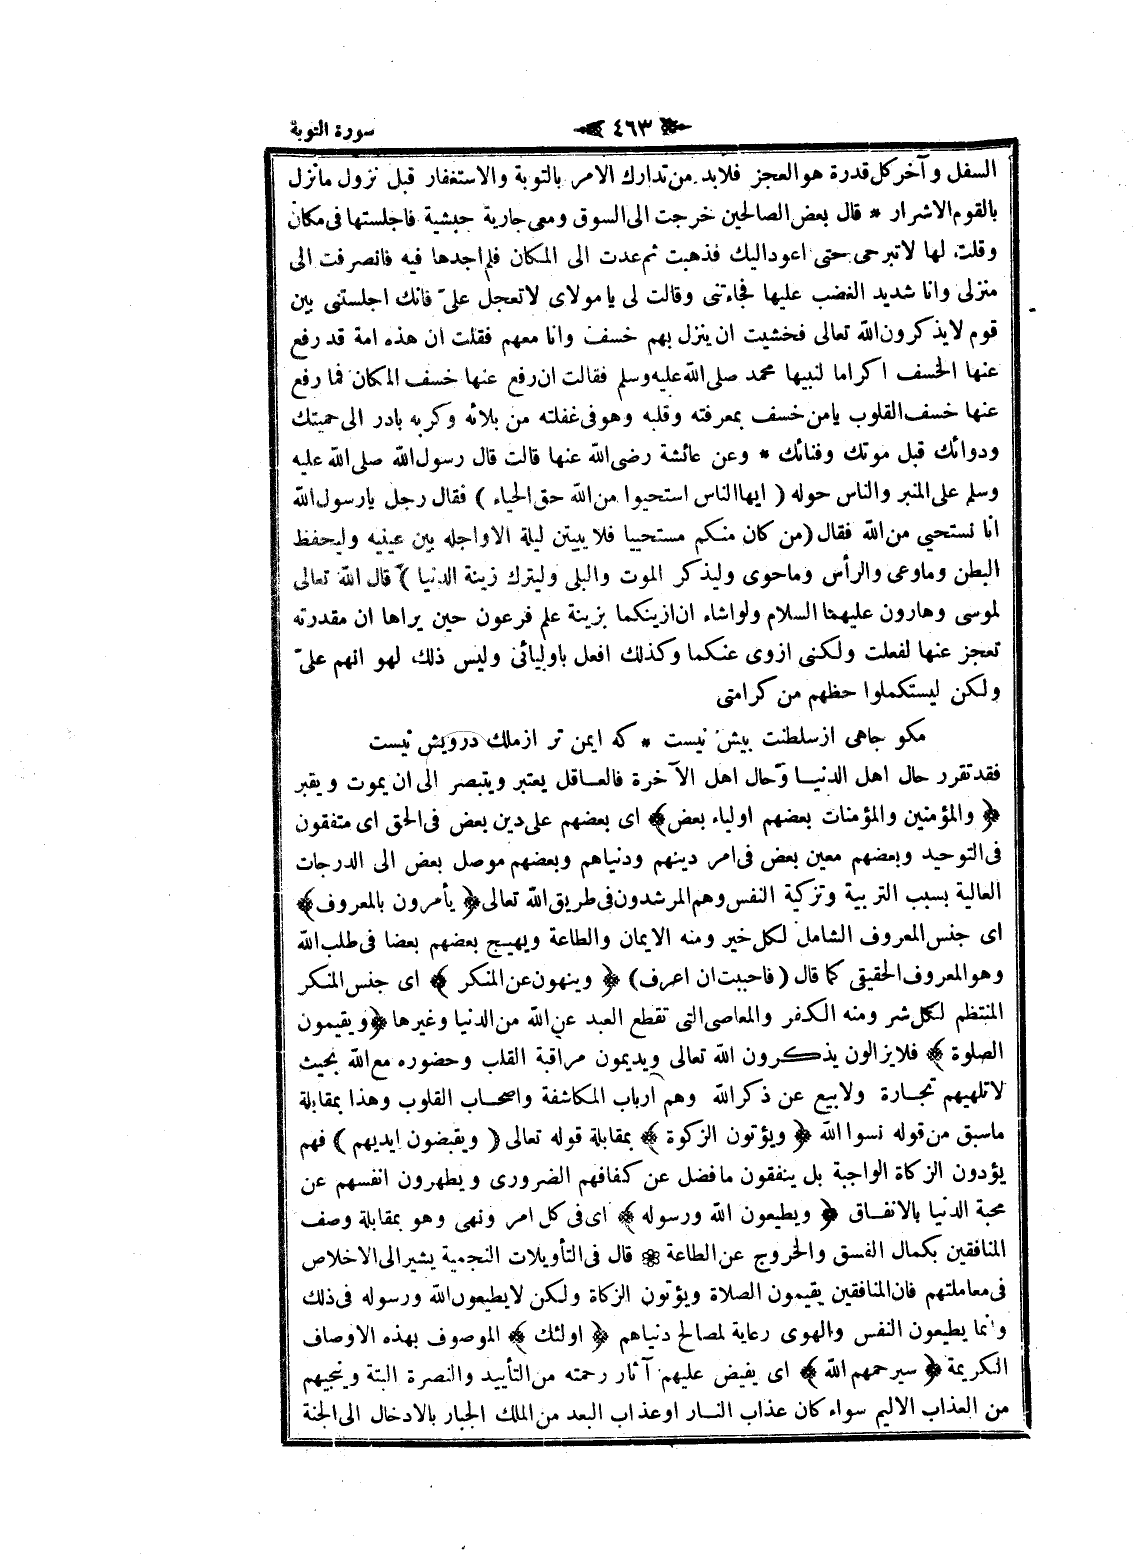 سورة التوبة ﴿ ٤٦٣ ﴾
السفل وآخر كل قدرة هو العجز فلابد من تدارك الامر بالتوبة والاستغفار قبل نزول مانزل
بالقوم الاشرار * قال بعض الصالحين خرجت الى السوق ومعى جارية حبشية فاجلستها فى مكان
وقلت لها لاتبرحى حتى اعود اليك فذهبت ثم عدت الى المكان فلم اجدها فيه فانصرفت الى
منزلى وانا شديد الغضب عليها فجاءتنى وقالت لى يا مولاى لاتعجل علىّ فانك اجلستنى بين
قوم لايذكرون الله تعالى فخشيت ان ينزل بهم خسف وانا معهم فقلت ان هذه امة قد رفع
عنها الخسف اكراما لنبيها محمد صلى الله عليه وسلم فقالت ان رفع عنها خسف المكان فما رفع
عنها خسف القلوب يامن خسف بمعرفته وقلبه وهو فى غفلته من بلائه وكربه بادر الى حميتك
ودوائك قبل موتك وفنائك * وعن عائشة رضى الله عنها قالت قال رسول الله صلى الله عليه
وسلم على المنبر والناس حوله ( ايها الناس استحيوا من الله حق الحياء ) فقال رجل يارسول الله
انا نستحيى من الله فقال (من كان منكم مستحييا فلا يبيتن ليلة الا واجله بين عينيه وليحفظ
البطن وماوعى والرأس وماحوى وليذكر الموت والبلى وليترك زينة الدنيا ) قال الله تعالى
لموسى وهارون عليهما السلام ولواشاء ان ازينكما بزينة علم فرعون حين يراها ان مقدرته
تعجز عنها لفعلت ولكنى ازوى عنكما وكذلك افعل باوليائى وليس ذلك لهو انهم علىّ
ولكن ليستكملوا حظهم من كرامتى
مكو جاهى از سلطنت بيش نيست * كه ايمن تر از ملك درويش نيست
فقد تقرر حال اهل الدنيا وحال اهل الآخرة فالعاقل يعتبر ويتبصر الى ان يموت ويقبر
﴿ والمؤمنين والمؤمنات بعضهم اولياء بعض ﴾ اى بعضهم على دين بعض فى الحق اى متفقون
فى التوحيد وبعضهم معين بعض فى امر دينهم ودنياهم وبعضهم موصل بعض الى الدرجات
العالية بسبب التربية وتزكية النفس وهم المرشدون فى طريق الله تعالى ﴿ يأمرون بالمعروف ﴾
اى جنس المعروف الشامل لكل خير ومنه الايمان والطاعة ويهيج بعضهم بعضا فى طلب الله
وهو المعروف الحقيقى كما قال ( فاحببت ان اعرف) ﴿ وينهون عن المنكر ﴾ اى جنس المنكر
المنتظم لكل شر ومنه الكفر والمعاصى التى تقطع العبد عن الله من الدنيا وغيرها ﴿ ويقيمون
الصلوة ﴾ فلا يزالون يذكرون الله تعالى ويديمون مراقبة القلب وحضوره مع الله بحيث
لاتلهيهم تجارة ولابيع عن ذكر الله وهم ارباب المكاشفة واصحاب القلوب وهذا بمقابلة
ماسبق من قوله نسوا الله ﴿ ويؤتون الزكوة ﴾ بمقابلة قوله تعالى ( ويقبضون ايديهم ) فهم
يؤدون الزكاة الواجبة بل ينفقون مافضل عن كفافهم الضرورى ويطهرون انفسهم عن
محبة الدنيا بالانفاق ﴿ ويطيعون الله ورسوله ﴾ اى فى كل امر ونهى وهو بمقابلة وصف
المنافقين بكمال الفسق والخروج عن الطاعة * قال فى التأويلات النجمية يشير الى الاخلاص
فى معاملتهم فان المنافقين يقيمون الصلاة ويؤتون الزكاة ولكن لايطيعون الله ورسوله فى ذلك
وانما يطيعون النفس والهوى رعاية لمصالح دنياهم ﴿ اولئك ﴾ الموصوف بهذه الاوصاف
الكريمة ﴿ سيرحمهم الله ﴾ اى يفيض عليهم آثار رحمته من التأييد والنصرة البتة وينجيهم
من العذاب الاليم سواء كان عذاب النار اوعذاب البعد من الملك الجبار بالادخال الى الجنة